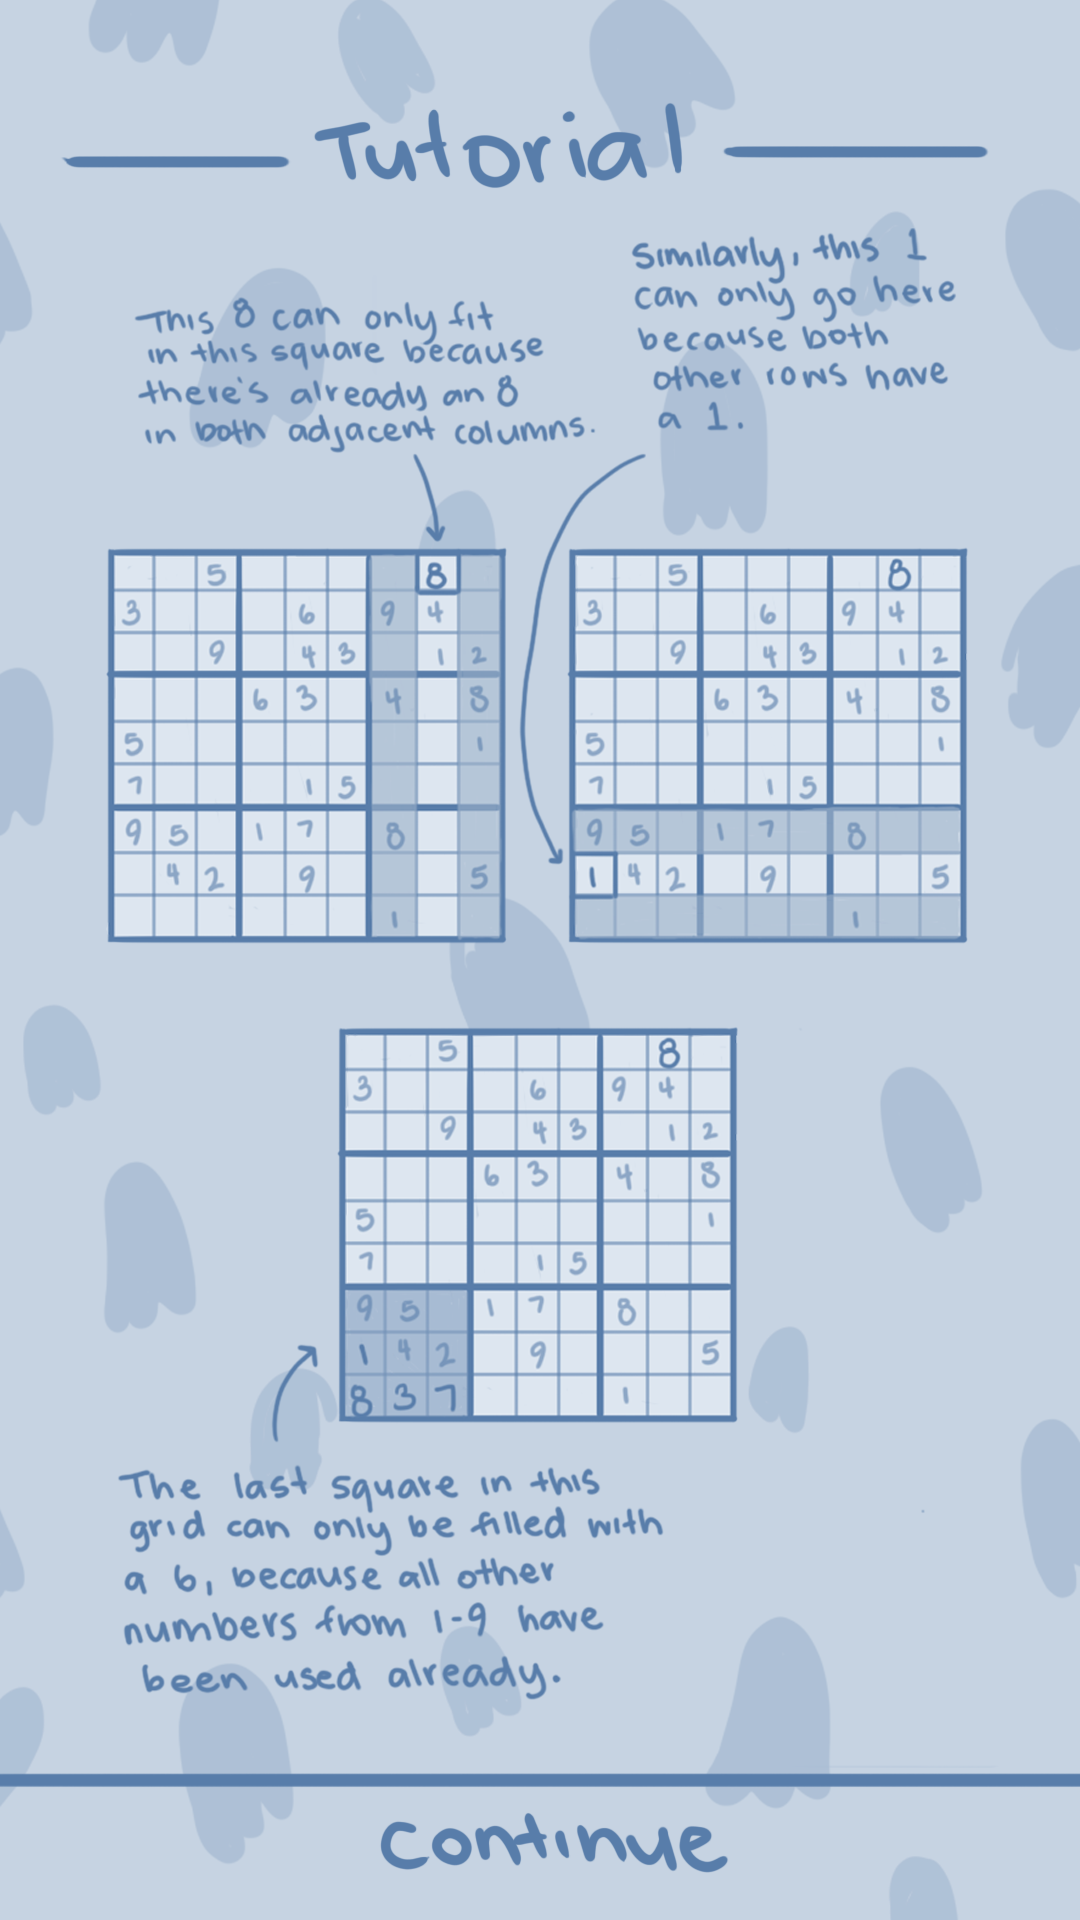 Tutorial
This 8 can only fit
in this square because
there's already an 8
in both adjacent columns.
Similarly, this 1
can only go here
because both
other rows have
a 1.
5 8
3 6 9 4
9 4 3 1 2
6 3 4 8
5 1
7 1 5
9 5 1 7 8
4 2 9 5
1
5 8
3 6 9 4
9 4 3 1 2
6 3 4 8
5 1
7 1 5
9 5 1 7 8
1 4 2 9 5
1
5 8
3 6 9 4
9 4 3 1 2
6 3 4 8
5 1
7 1 5
9 5 1 7 8
1 4 2 9 5
8 3 7 1
The last square in this
grid can only be filled with
a 6, because all other
numbers from 1-9 have
been used already.
Continue